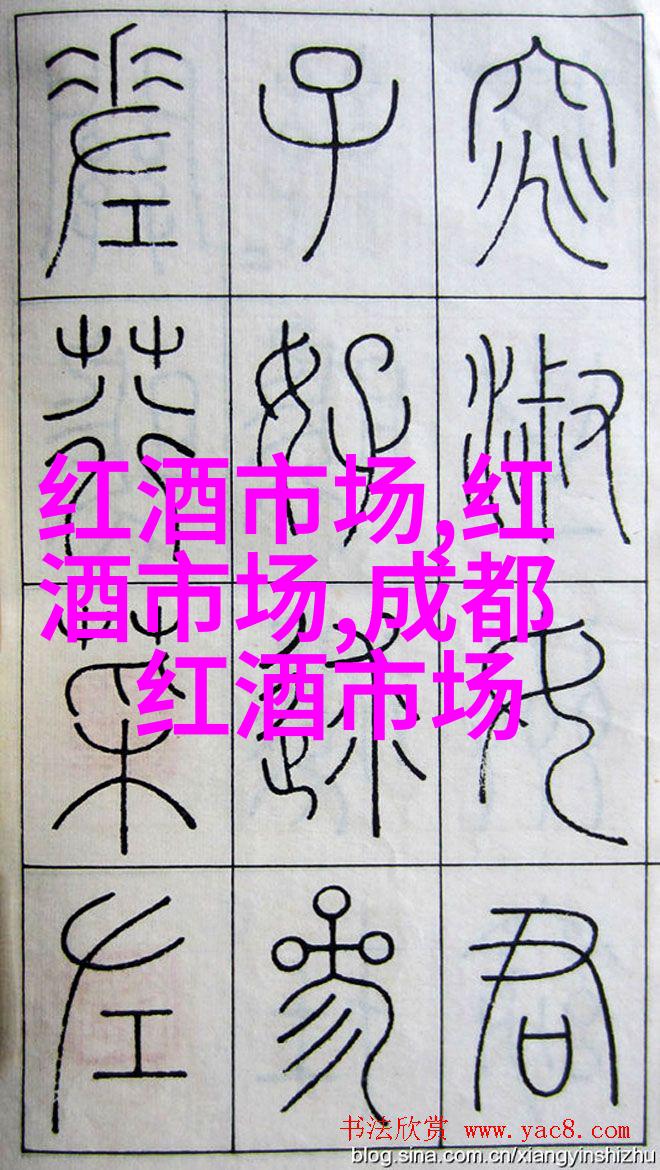 窕淑女君
子好逑參
差荇菜左
红酒市场,红
酒市场,成都
红酒市场
书法欣赏 www.yac8.com
blog.sina.com.cn/xiangyinshizhu